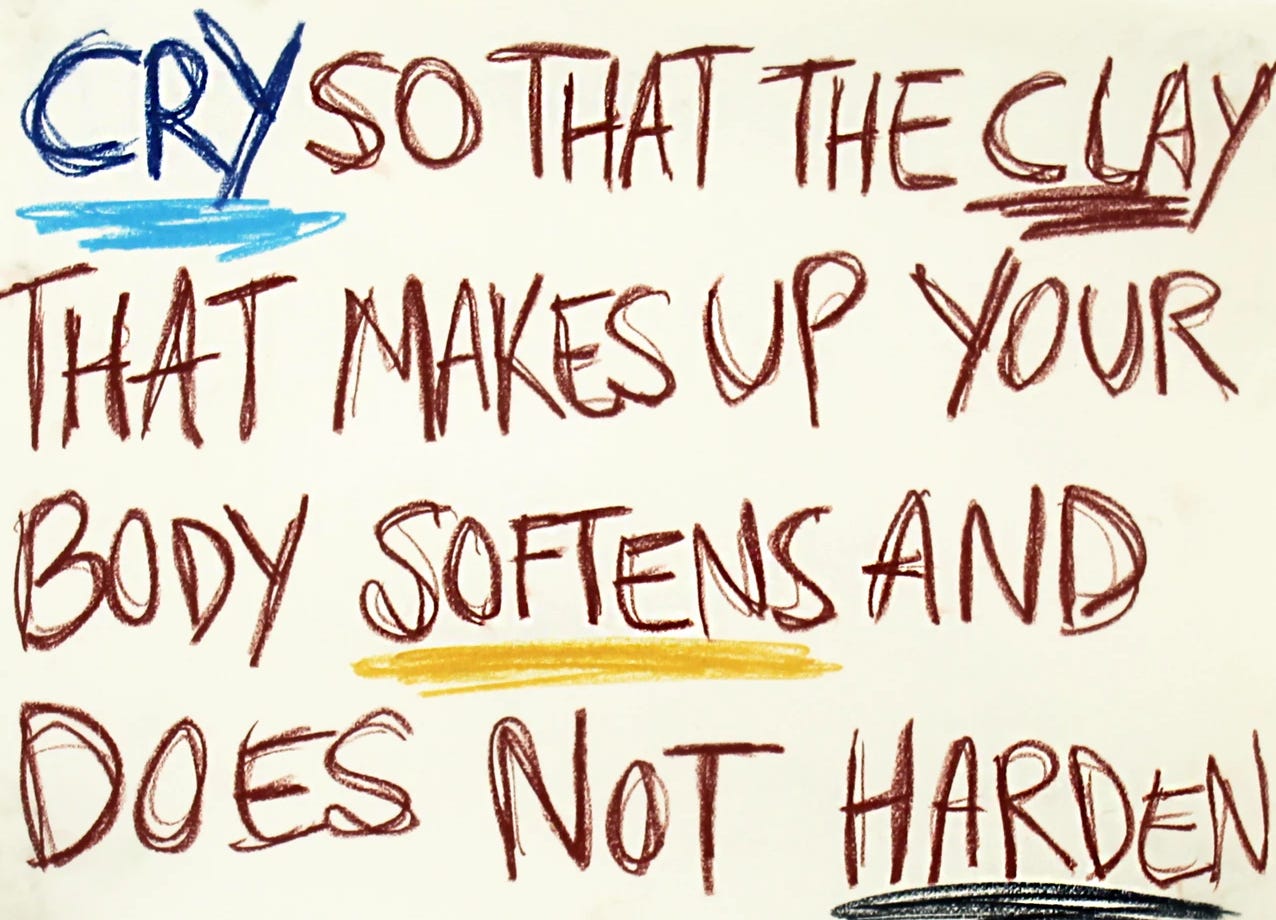 CRY SO THAT THE CLAY
THAT MAKES UP YOUR
BODY SOFTENS AND
DOES NOT HARDEN